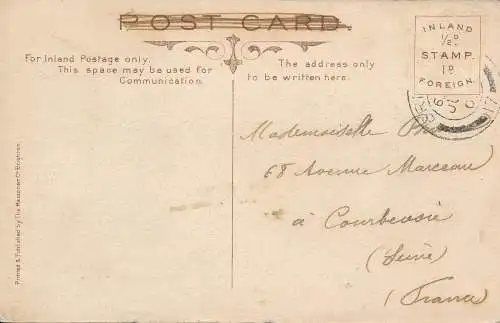 POST CARD.
INLAND
½D.
STAMP.
1D
FOREIGN.
For Inland Postage only.
This space may be used for
Communication.
The address only
to be written here.
Mademoiselle
68 Avenue Marceau
à Courbevoie
(Seine)
(France)
Printed & Published by The Mezzotint Co Brighton.